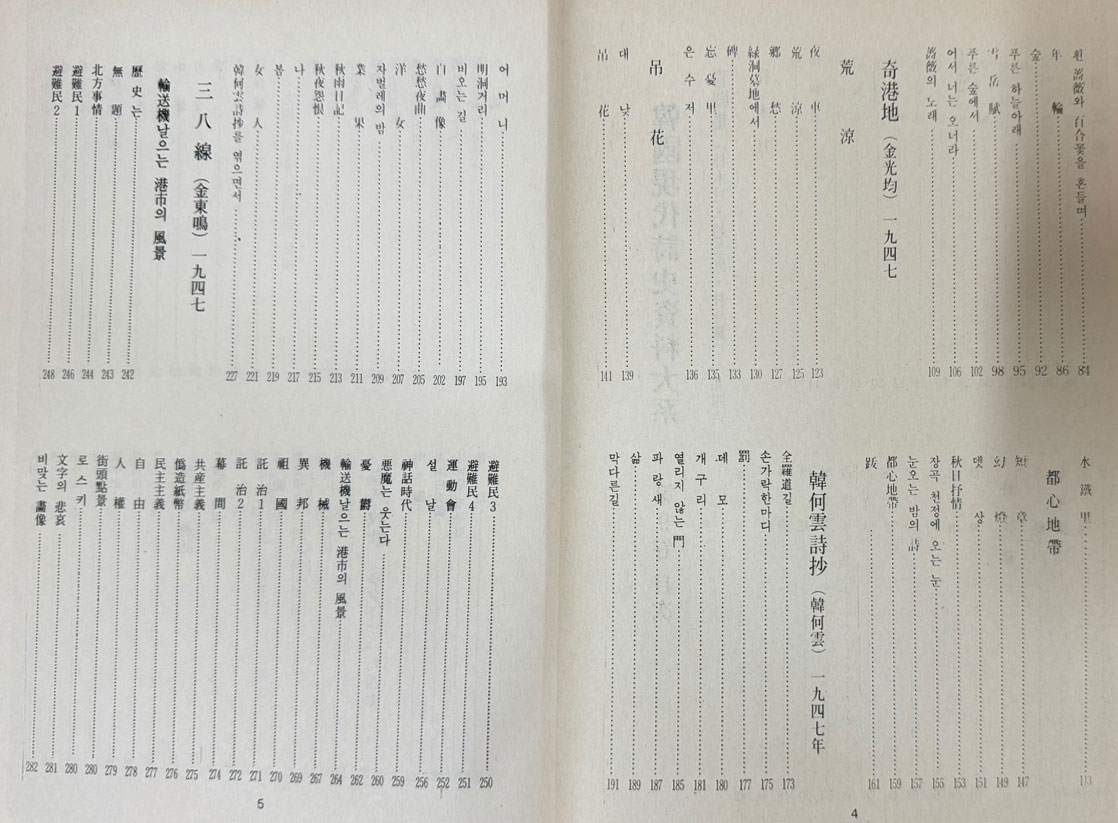 흰 薔薇와 百合꽃을 흔들며 84
年 輪 86
숲 92
푸른 하늘아래 95
岳 賦 98
푸른 숲에서 102
어서 너는 오너라 106
薔薇의 노래 109
奇港地 (金光均) 一九四七
荒 凉
夜 車 123
荒 凉 125
鄕 愁 127
綠洞墓地에서 130
碑 133
忘憂里 135
은 수 저 136
吊 花
대 낮 139
吊 花 141
水 鐵 里 113
都 心 地 帶
短 章 147
幻 燈 149
뎃 상 151
秋日抒情 153
장곡 천정에 오는 눈 155
눈오는 밤의 詩 157
都心地帶 159
跋 161
韓何雲詩抄 (韓何雲) 一九四七年
全羅道길 173
손가락한마디 175
罰 177
데 모 180
개 구 리 181
열리지 않는 門 185
파 랑 새 187
삶 189
막다른길 191
4
어 머 니 193
明洞거리 195
비오는 길 197
自 畵 像 202
愁愁夜曲 205
洋 女 207
자벌레의 밤 209
業 果 211
秋雨日記 213
秋夜怨恨 215
나 217
봄 219
女 人 221
韓何雲詩抄를 엮으면서 227
三 八 線 (金東鳴) 一九四七
輸送機날으는 港市의 風景
歷 史 는 242
無 題 243
北方事情 244
避難民 1 246
避難民 2 248
避難民 3 250
避難民 4 251
運 動 會 252
설 날 256
神話時代 259
惡魔는 웃는다 260
憂 鬱 262
輸送機날으는 港市의 風景 264
機 械 267
異 邦 269
祖 國 270
託 治 1 271
託 治 2 272
幕 間 274
共産主義 275
僞造紙幣 276
民主主義 277
自 由 278
人 權 279
街頭點景 280
로 스 키 280
文字의 悲哀 281
비맞는 畵像 282
5